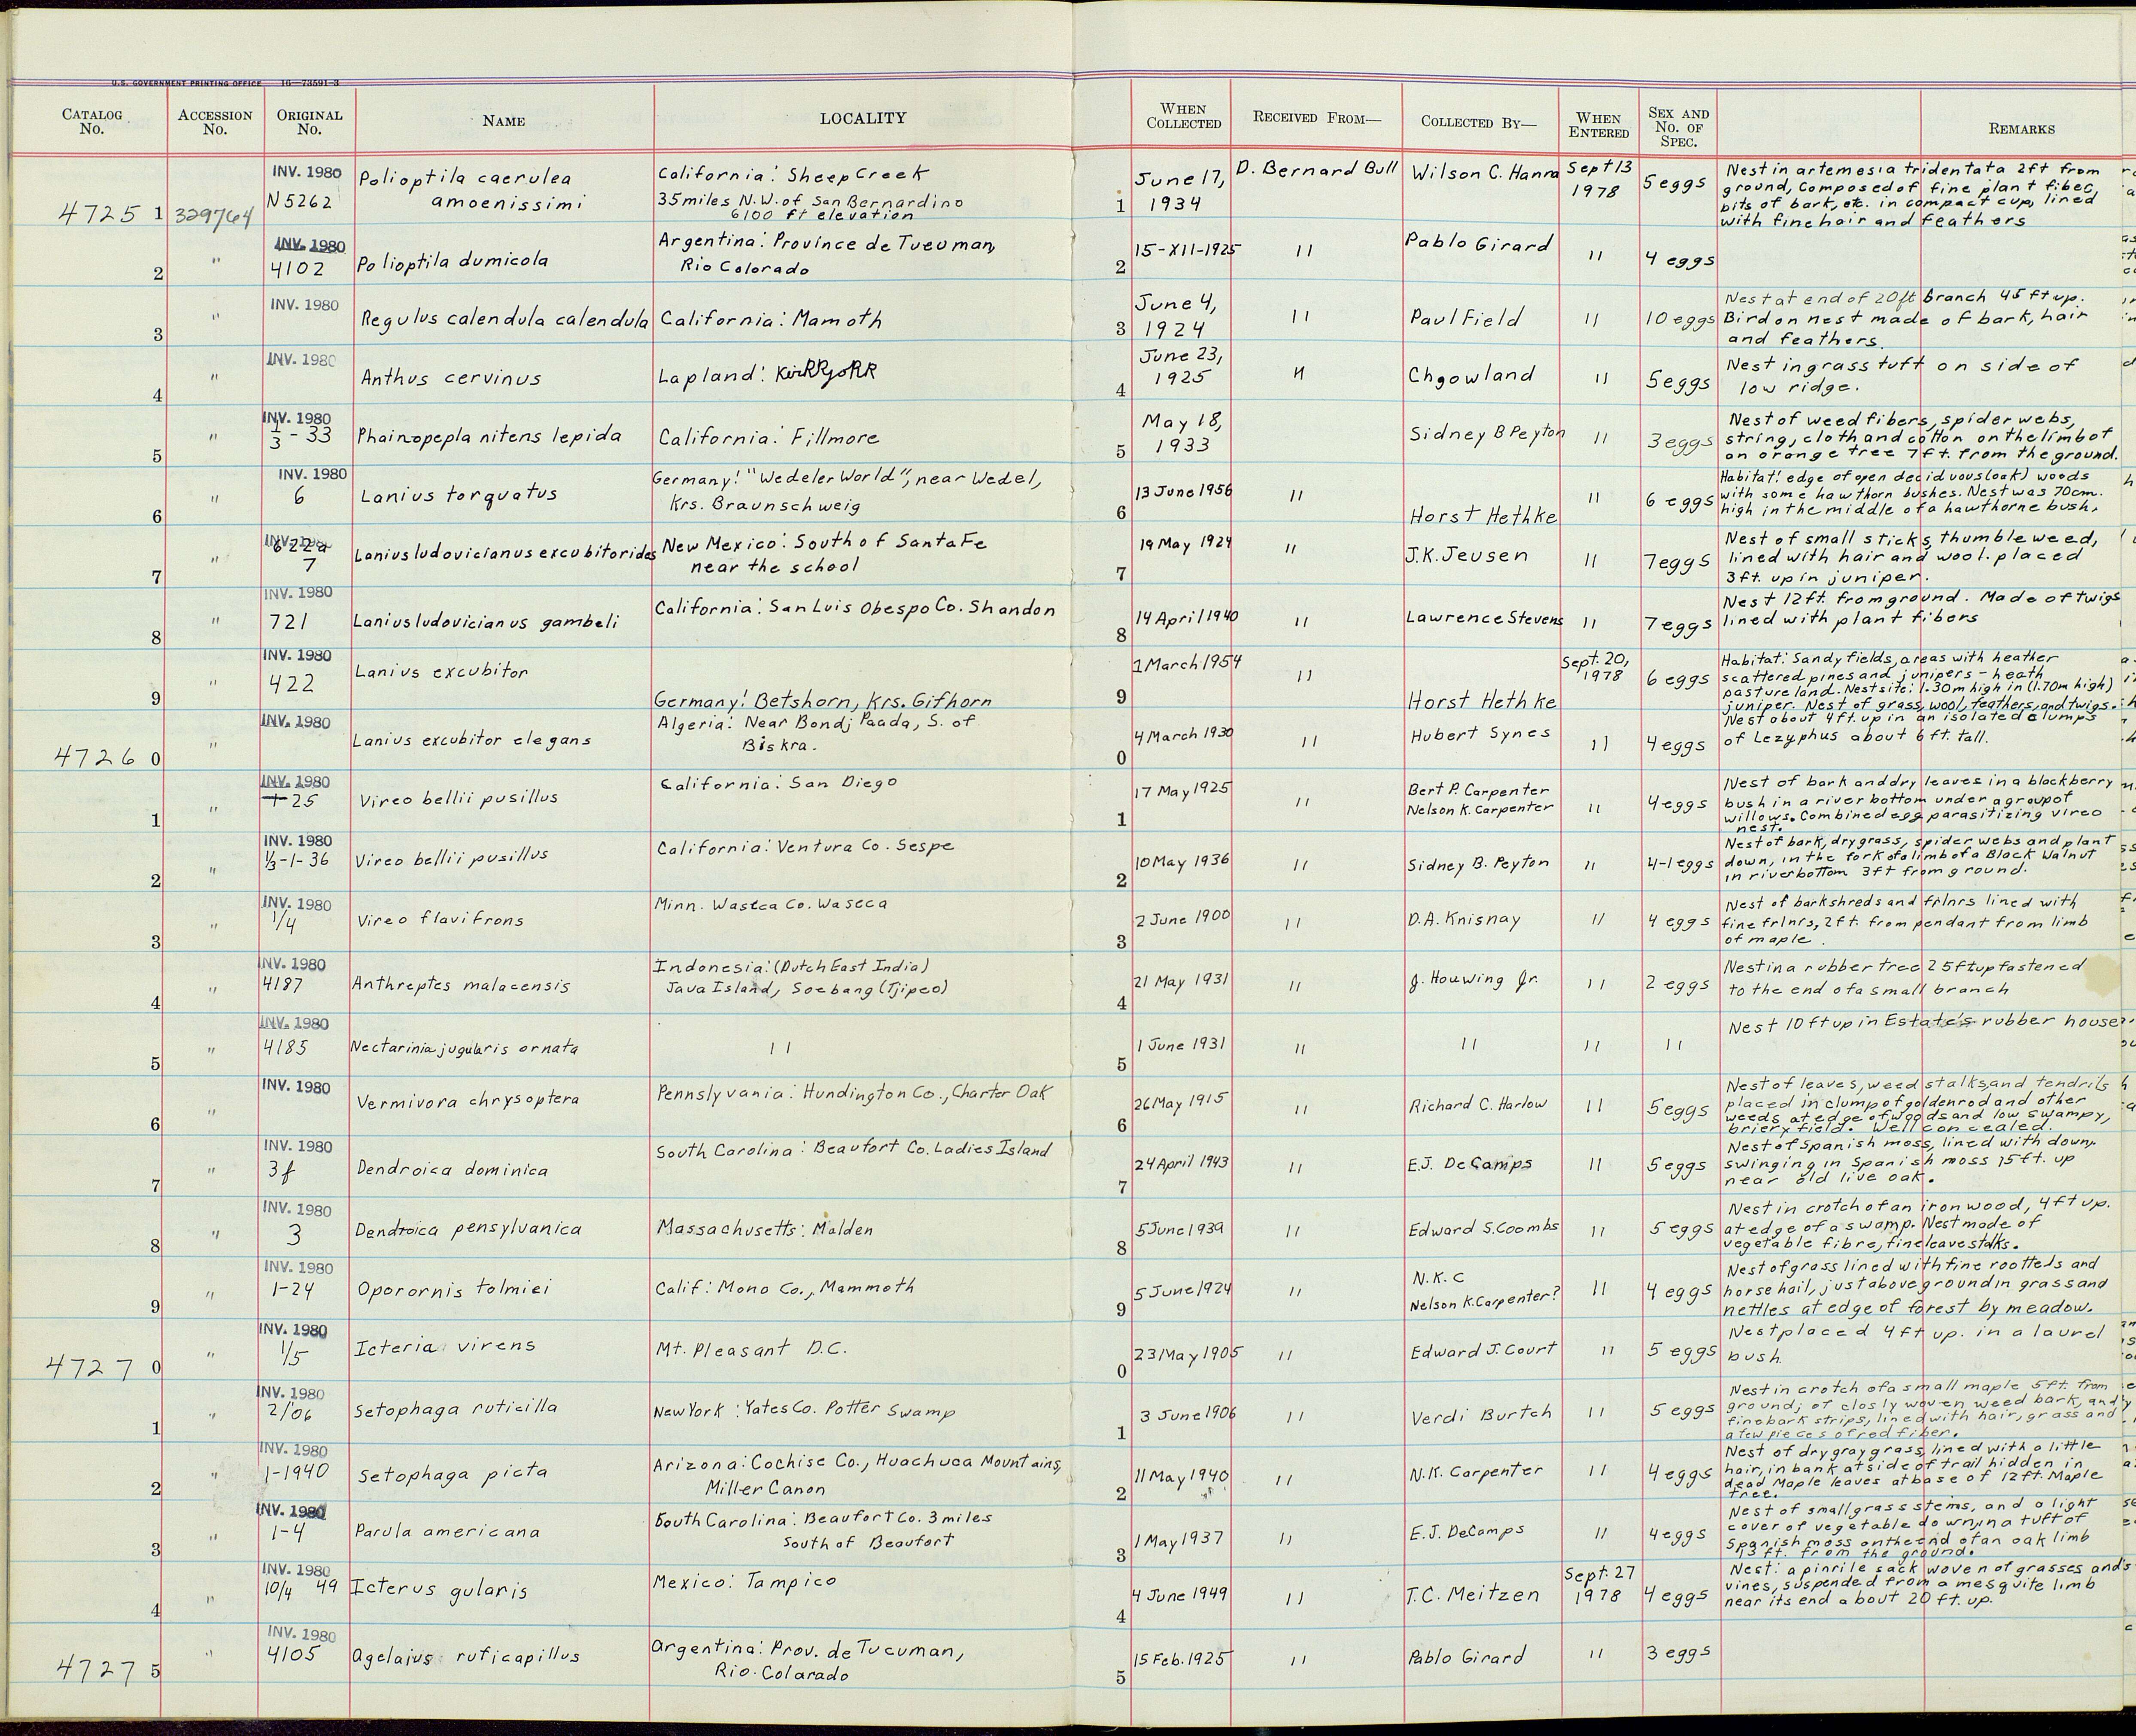 U.S. GOVERNMENT PRINTING OFFICE 16—73591-3
CATALOG No. ACCESSION No. ORIGINAL No. NAME LOCALITY WHEN COLLECTED RECEIVED FROM— COLLECTED BY— WHEN ENTERED SEX AND No. OF SPEC. REMARKS
INV. 1980 Polioptila caerulea California: Sheep Creek June 17, D. Bernard Bull Wilson C. Hanna Sept 13 5 eggs Nest in artemesia tridentata 2ft from
4725 1 329764 N5262 amoenissimi 35 miles N.W. of San Bernardino 1 1934 1978 ground, Composed of fine plant fibec,
6100 ft elevation bits of bark, etc. in compact cup, lined
with fine hair and feathers
INV. 1980 Argentina: Province de Tucuman, 15-XII-1925 " Pablo Girard " 4 eggs
2 " 4102 Polioptila dumicola Rio Colorado 2
INV. 1980 June 4, Nest at end of 20ft branch 45 ft up.
3 " Regulus calendula calendula California: Mamoth 3 1924 " Paul Field " 10 eggs Bird on nest made of bark, hair
and feathers.
INV. 1980 June 23, Nest in grass tuft on side of
4 " Anthus cervinus Lapland: 4 1925 " Chgowland " 5 eggs low ridge.
INV. 1980 May 18, Nest of weed fibers, spider webs,
5 " 1/3-33 Phainopepla nitens lepida California: Fillmore 5 1933 Sidney B Peyton " 3 eggs string, cloth and cotton on the limb of
an orange tree 7ft. from the ground.
INV. 1980 Germany: "Wedeler World", near Wedel, 13 June 1956 " " Habitat: edge of open decid uous (oak) woods
6 " 6 Lanius torquatus Krs. Braunschweig 6 Horst Hethke 6 eggs with some hawthorn bushes. Nest was 70cm.
high in the middle of a hawthorne bush.
INV. 1980 622a New Mexico: South of Santa Fe 19 May 1924 " Nest of small sticks, thumble weed,
7 " 7 Lanius ludovicianus excubitorides near the school 7 J.K. Jeusen " 7 eggs lined with hair and wool. placed
3ft. up in juniper.
INV. 1980 California: San Luis Obespo Co. Shandon Nest 12ft. from ground. Made of twigs
8 " 721 Lanius ludovicianus gambeli 8 14 April 1940 " Lawrence Stevens " 7 eggs lined with plant fibers
INV. 1980 Lanius excubitor 1 March 1954 Sept. 20, Habitat: Sandy fields, areas with heather
9 " 422 9 " 1978 6 eggs scattered pines and junipers - heath
Germany: Betshorn, Krs. Gifhorn Horst Hethke pasture land. Nest site: 1.30m high in (1.70m high)
juniper. Nest of grass, wool, feathers, and twigs.
INV. 1980 Algeria: Near Bondj Paada, S. of 4 March 1930 Hubert Synes Nest about 4ft. up in an isolated clumps
4726 0 " Lanius excubitor elegans Biskra. 0 " " 4 eggs of Lezyphus about 6 ft. tall.
INV. 1980 California: San Diego 17 May 1925 Bert P. Carpenter Nest of bark and dry leaves in a blackberry
1 " 25 Vireo bellii pusillus 1 " Nelson K. Carpenter " 4 eggs bush in a river bottom under a group of
willows. Combined egg parasitizing vireo
nest.
INV. 1980 California: Ventura Co. Sespe Nest of bark, dry grass, spider webs and plant
2 " 1/3-1-36 Vireo bellii pusillus 2 10 May 1936 " Sidney B. Peyton " 4-1 eggs down, in the fork of a limb of a Black Walnut
in river bottom 3ft from ground.
INV. 1980 Minn. Waseca Co. Waseca Nest of bark shreds and frlnrs lined with
3 " 1/4 Vireo flavifrons 3 2 June 1900 " D.A. Knisnay " 4 eggs fine frlnrs, 2ft. from pendant from limb
of maple.
INV. 1980 Indonesia: (Dutch East India) Nest in a rubber tree 25ft up fastened
4 " 4187 Anthreptes malacensis Java Island, Soebang (Tjipeo) 4 21 May 1931 " J. Houwing Jr. " 2 eggs to the end of a small branch
INV. 1980 Nest 10ft up in Estate's rubber house.
5 " 4185 Nectarinia jugularis ornata " 5 1 June 1931 " " " "
INV. 1980 Pennslyvania: Hundington Co., Charter Oak Nest of leaves, weed stalks, and tendrils
6 " Vermivora chrysoptera 6 26 May 1915 " Richard C. Harlow " 5 eggs placed in clump of goldenrod and other
weeds at edge of woods and low swampy,
briery field. Well concealed.
INV. 1980 South Carolina: Beaufort Co. Ladies Island Nest of Spanish moss, lined with down,
7 " 3f Dendroica dominica 7 24 April 1943 " E.J. DeCamps " 5 eggs swinging in Spanish moss 15ft. up
near old live oak.
INV. 1980 Nest in crotch of an iron wood, 4ft up.
8 " 3 Dendroica pensylvanica Massachusetts: Malden 8 5 June 1939 " Edward S. Coombs " 5 eggs at edge of a swamp. Nest made of
vegetable fibre, fine leave stalks.
INV. 1980 N.K.C Nest of grass lined with fine rootteds and
9 " 1-24 Oporornis tolmiei Calif: Mono Co., Mammoth 9 5 June 1924 " Nelson K. Carpenter? " 4 eggs horse hail, just above ground in grass and
nettles at edge of forest by meadow.
INV. 1980 Nest placed 4ft up. in a laurel
4727 0 " 1/5 Icteria virens Mt. Pleasant D.C. 0 23 May 1905 " Edward J. Court " 5 eggs bush
INV. 1980 Nest in crotch of a small maple 5ft. from
1 " 2/06 Setophaga ruticilla New York: Yates Co. Potter Swamp 1 3 June 1906 " Verdi Burtch " 5 eggs ground; of closly woven weed bark, and
fine bark strips, lined with hair, grass and
a few pieces of red fiber.
INV. 1980 Arizona: Cochise Co., Huachuca Mountains, Nest of dry gray grass, lined with a little
2 " 1-1940 Setophaga picta Miller Canon 2 11 May 1940 " N.K. Carpenter " 4 eggs hair, in bank at side of trail hidden in
dead Maple leaves at base of 12ft. Maple
tree.
INV. 1980 South Carolina: Beaufort Co. 3 miles Nest of small grass stems, and a light
3 " 1-4 Parula americana South of Beaufort 3 1 May 1937 " E.J. DeCamps " 4 eggs cover of vegetable down, in a tuft of
Spanish moss on the end of an oak limb
13 ft. from the ground.
INV. 1980 Mexico: Tampico Sept. 27 Nest: a pinrile sack woven of grasses and
4 " 10/4 49 Icterus gularis 4 4 June 1949 " T.C. Meitzen 1978 4 eggs vines, suspended from a mesquite limb
near its end about 20 ft. up.
INV. 1980 Argentina: Prov. de Tucuman,
4727 5 " 4105 Agelaius ruficapillus Rio Colarado 5 15 Feb. 1925 " Pablo Girard " 3 eggs